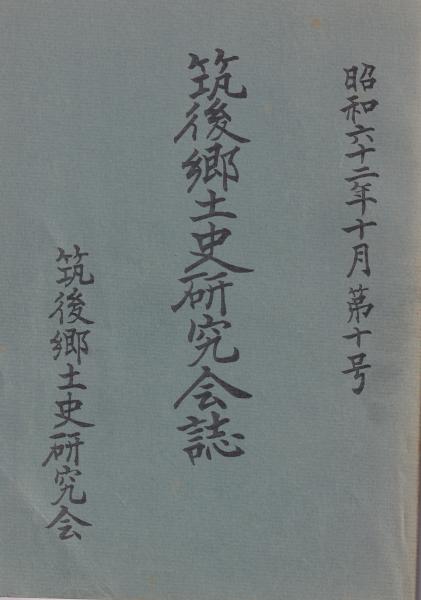 昭和六十二年十月 第十号
筑後郷土史研究会誌
筑後郷土史研究会